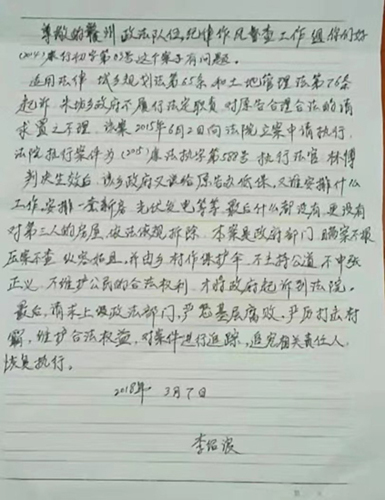 尊敬的赣州政法队伍纪律作风督查工作组你们好
(2014)奉行初字第03号这个案子有问题。
适用法律 城乡规划法第65条和土地管理法第76条
起诉 朱坊乡政府不履行法定职责 对原告合理合法的请
求置之不理 该案2015年6月2日向法院立案申请执行,
法院执行案件为(2015)康法执字第588号 执行法官 林博
判决生效后 该乡政府又说给原告办低保,又说安排什么
工作,安排一套新房 光伏发电等等 最后什么都没有,更没有
对第三人的房屋,依法依规拆除 本案是政府部门 瞒案不报
压案不查 纵容姑息,并由乡村作保护伞 不主持公道 不申张
正义 不维护公民的合法权利 才将政府起诉到法院。
最后,请求上级政法部门,严惩基层腐败,严历打击村
霸,维护合法权益,对案件进行追踪,追究相关责任人,
恢复执行。
2018年 3月7日
李绍